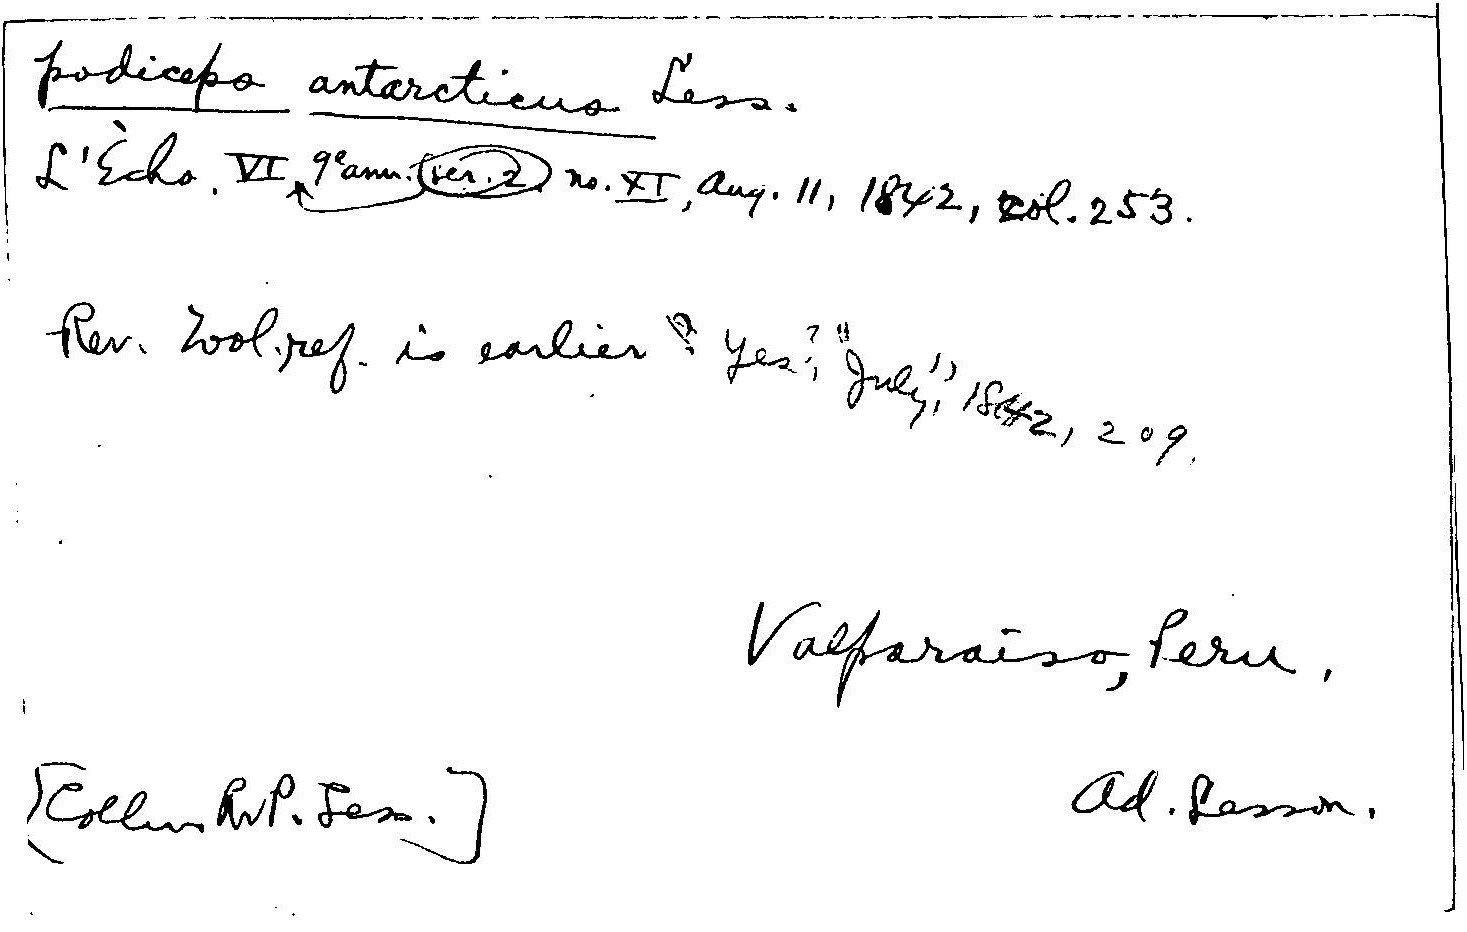 podiceps antarcticus Less.
L'Écho. VI 9e ann. (ser. 2) no. XI, Aug. 11, 1842, col. 253.
Rev. Zool. ref. is earlier? Yes?, "July," 1842, 209.
Valparaiso, Peru.
[Coll. R.P. Less.]
Ad. Lesson.